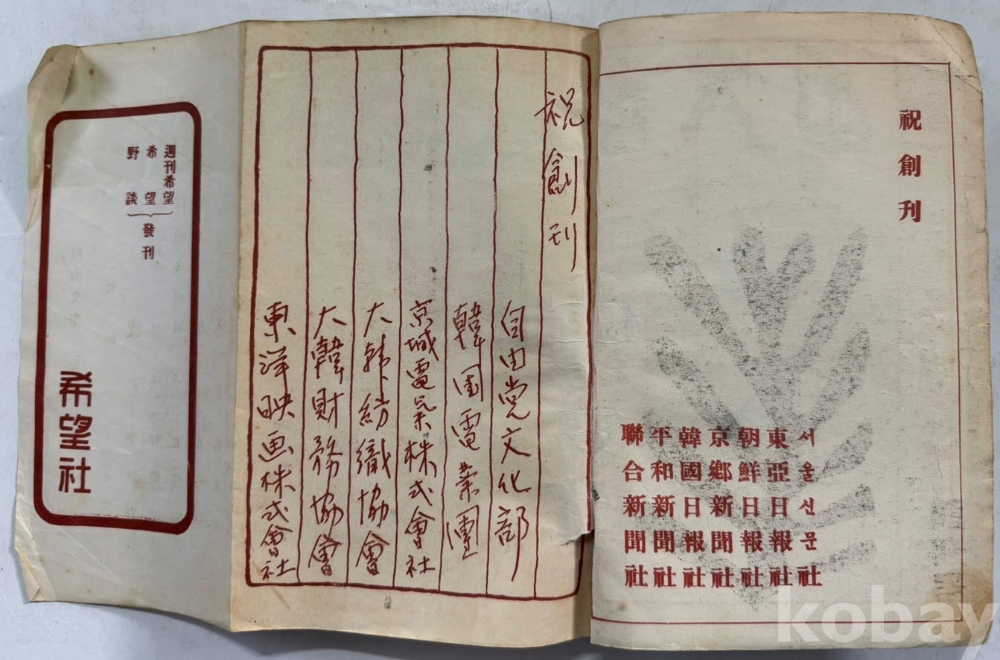 祝創刊
서울신문社
東亞日報社
朝鮮日報社
京鄕新聞社
韓國日報社
平和新聞社
聯合新聞社
祝創刊
自由党文化部
韓国電業團
京城電気株式會社
大韩紡織協會
大韓財務協會
東洋映画株式會社
週刊希望
希望
野談
發刊
希望社
kobay